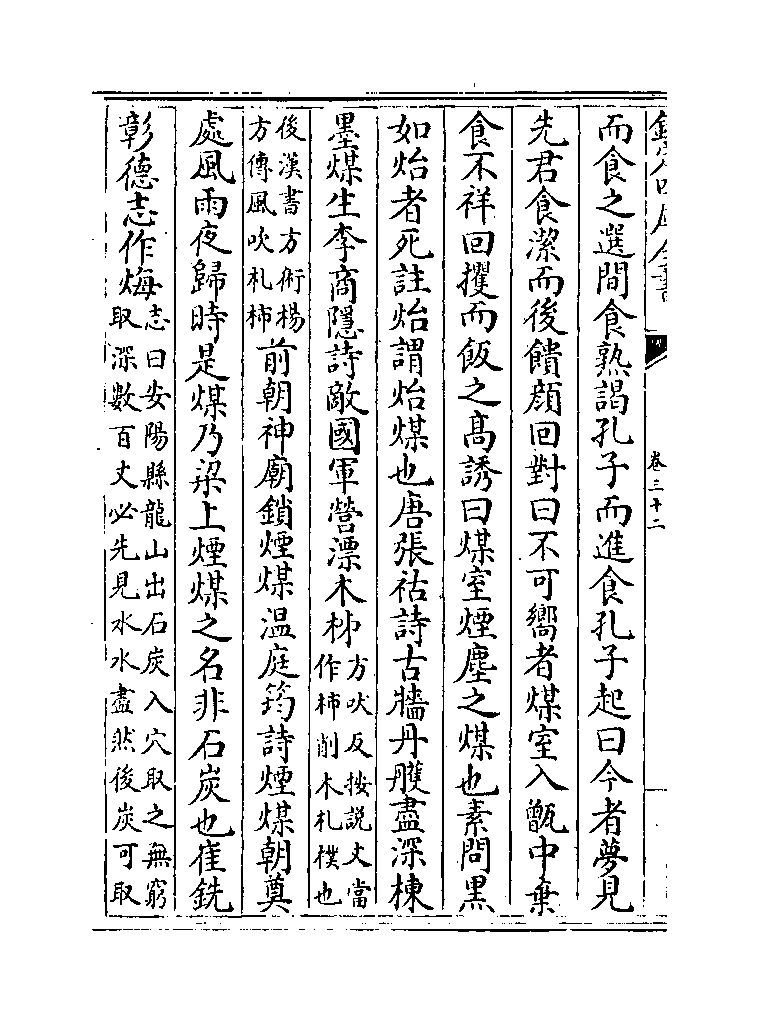 卷三十二
而食之選間食熟謁孔子而進食孔子起曰今者夢見
先君食潔而後饋顔回對曰不可嚮者煤室入甑中棄
食不祥回攫而飯之髙誘曰煤室煙塵之煤也素問黒
如炲者死註炲謂炲煤也唐張祜詩古牆丹雘盡深棟
墨煤生李商隱詩敵國軍營漂木柹方吠反按説文當作柿削木札樸也
後漢書方術楊方傳風吹札柿前朝神廟鎖煙煤温庭筠詩煙煤朝奠
處風雨夜歸時是煤乃梁上煙煤之名非石炭也崔銑
彰德志作㷬志曰安陽縣龍山出石炭入穴取之無窮取深數百丈必先見水水盡然後炭可取